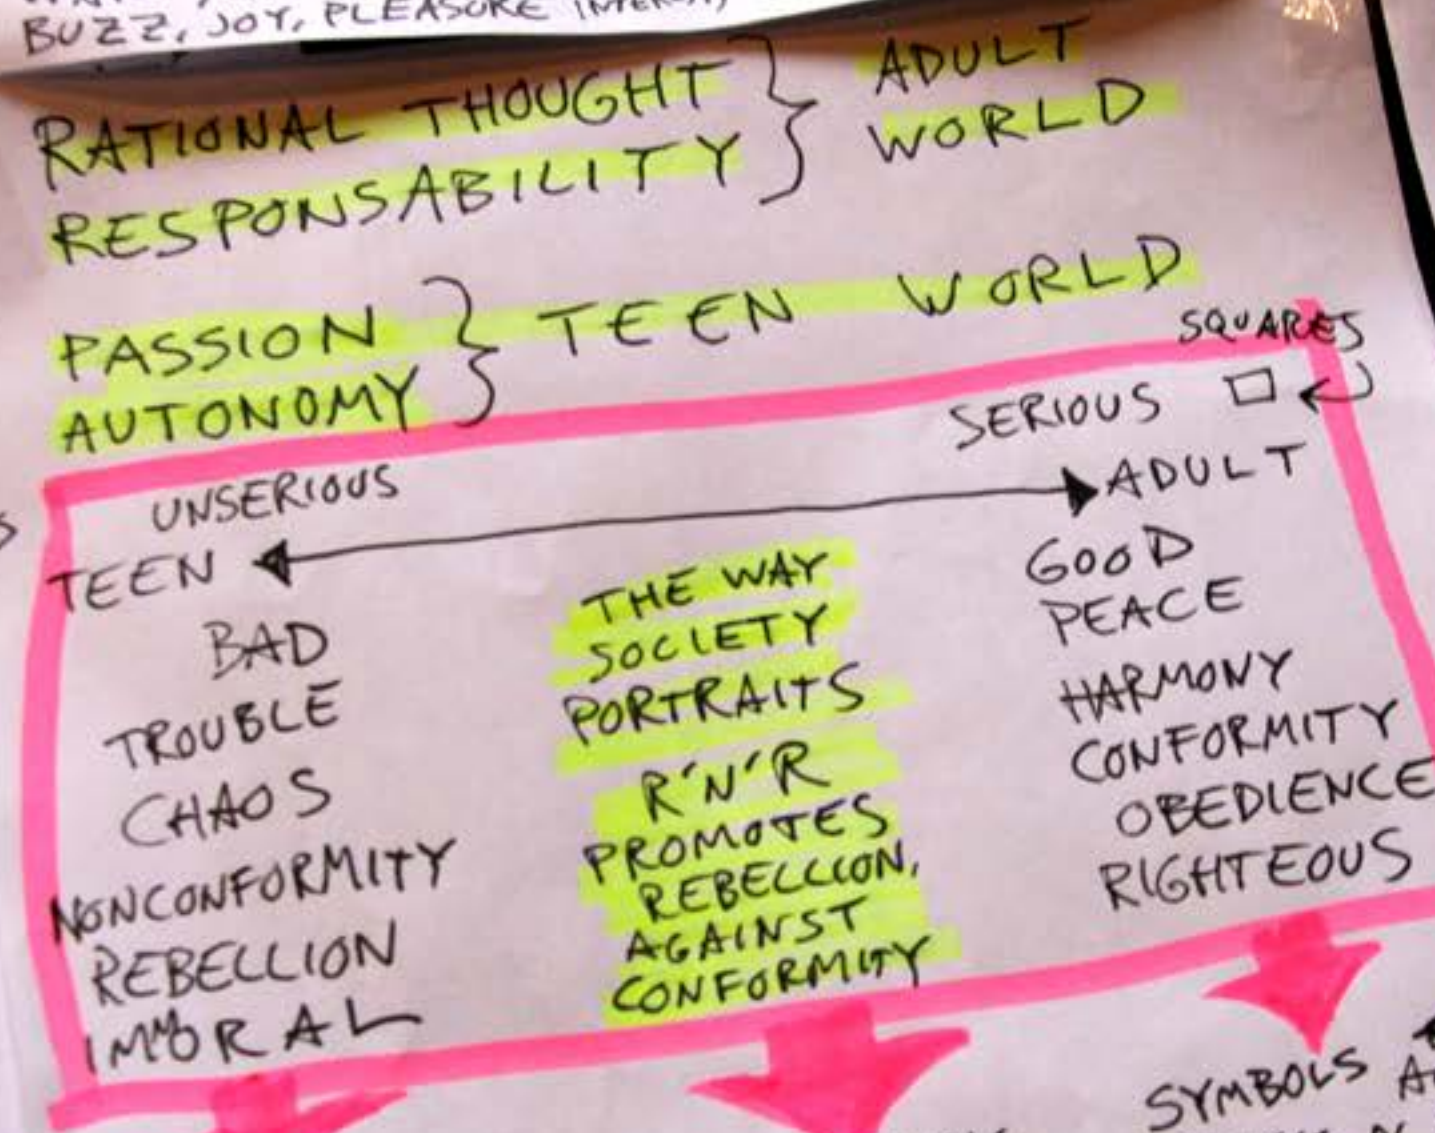 BUZZ, JOY, PLEASURE
RATIONAL THOUGHT } ADULT
RESPONSABILITY } WORLD
PASSION } TEEN WORLD
AUTONOMY
SQUARES
UNSERIOUS SERIOUS
TEEN ADULT
BAD
TROUBLE
CHAOS
NONCONFORMITY
REBELLION
IMMORAL
THE WAY
SOCIETY
PORTRAITS
R'N'R
PROMOTES
REBELLION,
AGAINST
CONFORMITY
GOOD
PEACE
HARMONY
CONFORMITY
OBEDIENCE
RIGHTEOUS
SYMBOLS